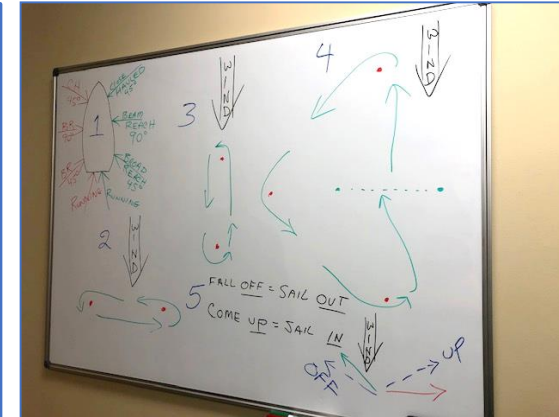 CH
45°
CLOSE
HAULED
45°
1
BR
90°
BEAM
REACH
90°
BR
45°
BROAD
REACH
45°
RUNNING
RUNNING
2
WIND
3
WIND
4
WIND
5
FALL OFF = SAIL OUT
COME UP = SAIL IN
WIND
OFF
UP